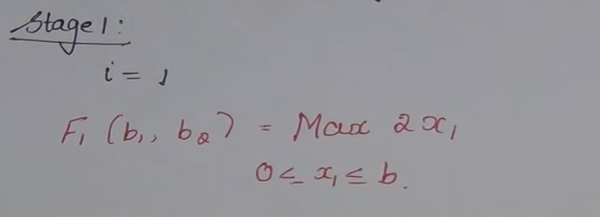 Stage 1:
i = 1
F₁ (b₁, b₂) = Max 2x₁
0 ≤ x₁ ≤ b.